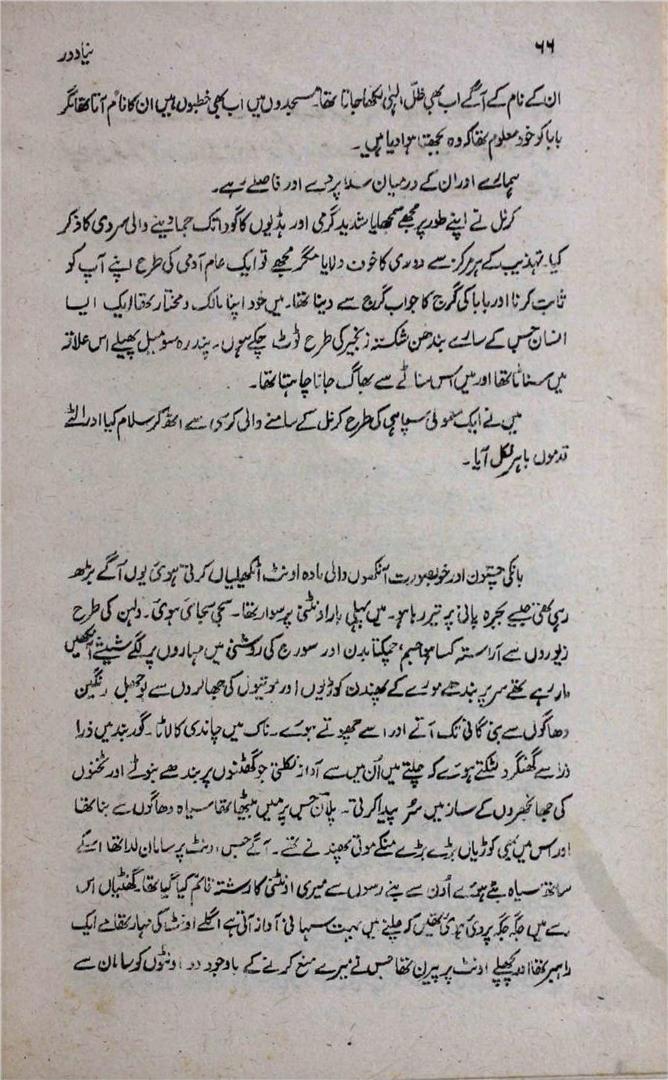 ۶۶
نیا دور
ان کے نام کے آگے اب بھی ظلّ الٰہی لکھا جاتا تھا۔ مسجدوں میں اب بھی خطبوں میں ان کا نام آتا تھا مگر
بابا کو خود معلوم تھا کہ وہ بجھتا ہوا دیا ہیں۔
ہمارے اور ان کے درمیان سدا پردے اور فاصلے رہے۔
کرنل نے اپنے طور پر مجھے سمجھایا شدید گرمی اور ہڈیوں کا گودا تک جما دینے والی سردی کا ذکر
کیا۔ تہذیب کے ہر مرکز سے دوری کا خوف دلایا مگر مجھے تو ایک عام آدمی کی طرح اپنے آپ کو
ثابت کرنا اور بابا کی گرج کا جواب گرج سے دینا تھا۔ میں خود اپنا مالک و مختار تھا ایک ایسا
انسان جس کے سارے بندھن شکستہ زنجیر کی طرح ٹوٹ چکے ہوں۔ پندرہ سو میل پھیلے اس علاقہ
میں سناٹا تھا اور میں اس سناٹے سے بھاگ جانا چاہتا تھا۔
میں نے ایک معمولی سپاہی کی طرح کرنل کے سامنے والی کرسی سے اٹھ کر سلام کیا اور الٹے
قدموں باہر نکل آیا۔
بانکی چتون اور خوبصورت آنکھوں والی مادہ اونٹ اٹکھیلیاں کرتی ہوئی یوں آگے بڑھ
رہی تھی جیسے بجرہ پانی پر تیر رہا ہو۔ میں پہلی بار اونٹنی پر سوار تھا۔ سجی سجائی ہوئی۔ دلہن کی طرح
زیوروں سے آراستہ کسا ہوا جسم، چمکتا بدن اور سورج کی روشنی میں مہاروں پر لگے شیشے آنکھیں
مار رہے تھے سر پر بندھے مورے کے پھندن کوڑیوں اور موتیوں کی جھالروں سے بوجھل رنگین
دھاگوں سے بنی گانی تک آتے اور اسے چھوتے ہوئے۔ ناک میں چاندی کا لاٹا۔ گوربند میں ذرا
ذرا سے گھنگرو لٹکتے ہوئے کہ چلتے میں اُن میں سے آواز نکلتی جو گھٹنوں پر بندھے بنوٹے اور ٹخنوں
کی جھانجھروں کے ساز میں سُر پیدا کرتی۔ پلان جس پر میں بیٹھا تھا سیاہ دھاگوں سے بنا تھا
اور اس میں بھی کوڑیاں بڑے بڑے منکے موتی پھندنے تھے۔ آگے جس اونٹ پر سامان لدا تھا اسکے
ساتھ سیاہ بٹے ہوئے اُون سے بنے رسوں سے میری اونٹنی کا رشتہ قائم کیا گیا تھا۔ گھنٹیاں اس
رسے میں جگہ جگہ پر دی ہوئی تھیں کہ چلنے میں بہت سہانی آواز آتی ہے اگلے اونٹ کی مہار تھامے ایک
راہبر تھا اور پچھلے اونٹ پر پیرن تھا جس نے میرے منع کرنے کے باوجود دو اونٹوں کو سامان سے